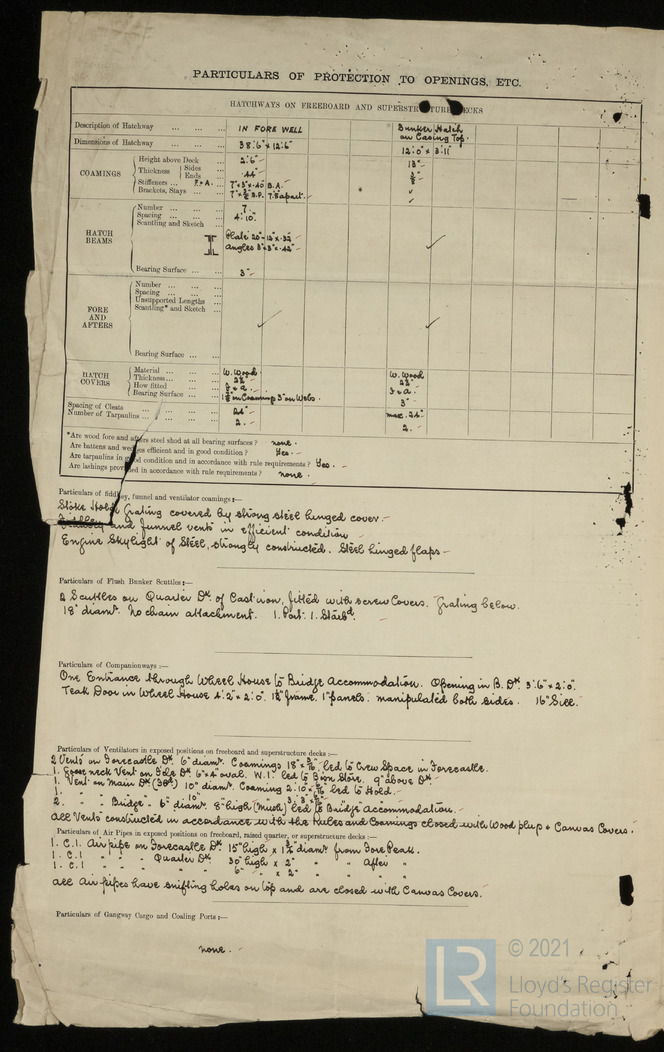 PARTICULARS OF PROTECTION TO OPENINGS, ETC.
HATCHWAYS ON FREEBOARD AND SUPERSTRUCTURE DECKS
Description of Hatchway ... ... ... IN FORE WELL Bunker Hatch on Casing Top.
Dimensions of Hatchway ... ... ... 38'.6" × 12'.6" 12'.0" × 3'.11"
COAMINGS
Height above Deck ... 2'.6" 18"
Thickness Sides ... .44"
Ends ...
Stiffeners ... F.&A. ... 7"×3"×.40 B.A.
Brackets, Stays ... ...
HATCH BEAMS
Number ... ... ... 7
Spacing ... ... ... 4'.10"
Scantling and Sketch ...
Plate 20"-12"×.32
Angles 3"×3"×.42"
Bearing Surface ... ... 3"
FORE AND AFTERS
Number ... ... ...
Spacing ... ... ...
Unsupported Lengths ...
Scantling* and Sketch ...
Bearing Surface ... ...
HATCH COVERS
Material ... ... ... W. Wood W. Wood
Thickness ... ... ... 2½" 2½"
How fitted ... ... F & A. F & A.
Bearing Surface ... ... on Coaming 3" on Webs. 3"
Spacing of Cleats ... ... ... 24" max. 24"
Number of Tarpaulins ... ... ... 2. 2.
*Are wood fore and afters steel shod at all bearing surfaces? none.
Are battens and wedges efficient and in good condition? Yes.
Are tarpaulins in good condition and in accordance with rule requirements? Yes.
Are lashings provided in accordance with rule requirements? none.
Particulars of fiddley, funnel and ventilator coamings:—
Stoke Hold Grating covered by strong steel hinged cover.
Fiddley and funnel vents in efficient condition
Engine Skylight of Steel, strongly constructed. Steel hinged flaps
Particulars of Flush Bunker Scuttles:—
2 Scuttles on Quarter Dk. of Cast iron, fitted with screw Covers. Grating below.
18" diamr. No chain attachment. 1. Port. 1. Starbd.
Particulars of Companionways:—
One Entrance through Wheel House to Bridge Accommodation. Opening in B. Dk 3'.6" × 2'.0".
Teak Door in Wheel House 4'.2" × 2'.0". frame. 1" panels. manipulated both sides. 16" Sill.
Particulars of Ventilators in exposed positions on freeboard and superstructure decks:—
2 Vents on Forecastle Dk. 6" diamr. Coamings 18" × led to Crew Space in Forecastle.
1. Goose neck Vent on Dk 6"×4" oval. W.I. led to Store. 9" above Dk
1. Vent on Main Dk 10" diamr. Coaming 2'.10" × led to Hold.
2. " " Bridge " 6" diamr. 8" high led to Bridge Accommodation.
All Vents constructed in accordance with the Rules and Coamings closed with Wood plugs & Canvas Covers.
Particulars of Air Pipes in exposed positions on freeboard, raised quarter, or superstructure decks:—
1. C.I. Air pipe on Forecastle Dk. 15" high × diamr. from Fore Peak.
1. C.I. " " " Quarter Dk. 30" high × 2" " " After "
1. C.I. " " " " " 6" " × 2" " " " "
All Air pipes have snifting holes on top and are closed with Canvas Covers.
Particulars of Gangway Cargo and Coaling Ports:—
none.
LR
© 2021
Lloyd's Register
Foundation